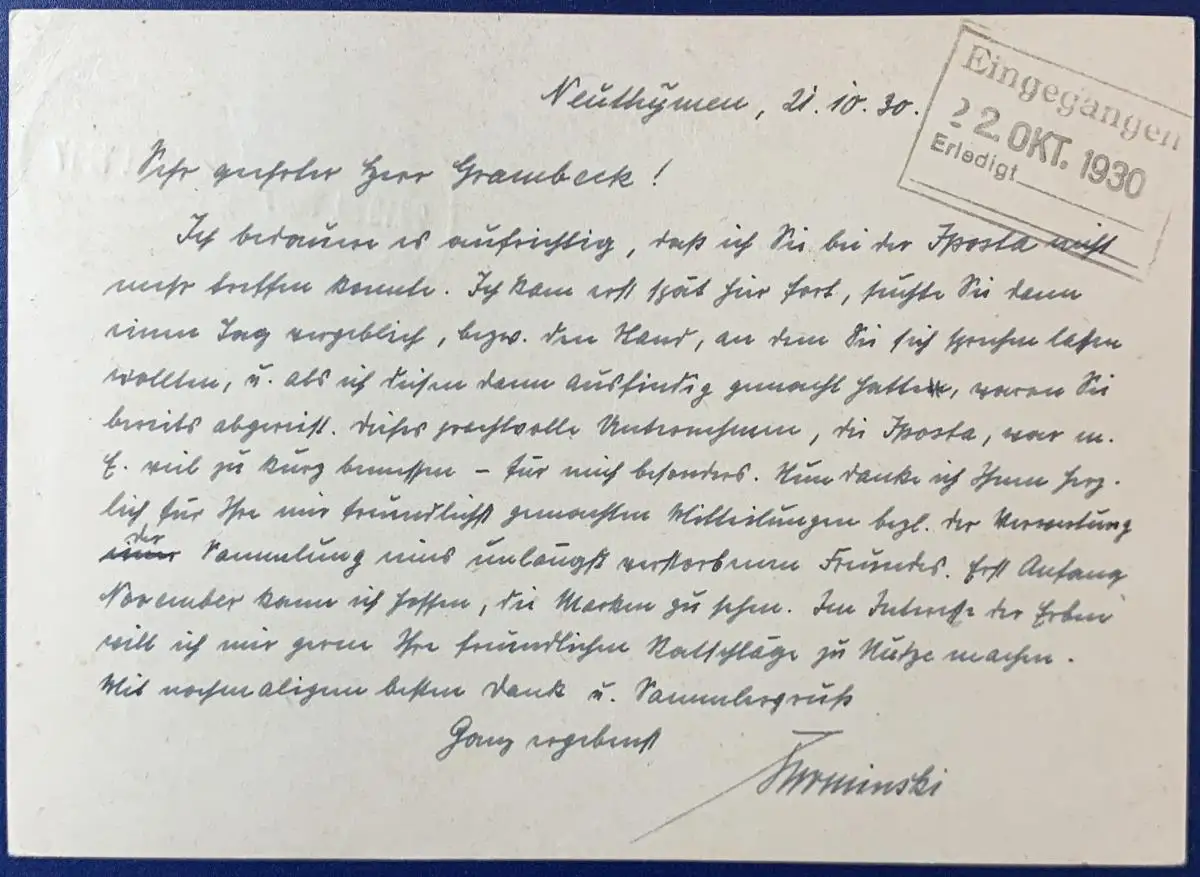 Eingegangen
22. OKT. 1930
Erledigt
Neuthymen, 21.10.30.
Sehr geehrter Herr Grambeck!
Ich bedauere es aufrichtig, daß ich Sie bei der Iposta nicht
mehr treffen konnte. Ich kam erst spät hier fort, suchte Sie dann
einen Tag vergeblich, bezw. den Stand, an dem Sie sich sprechen lassen
wollten, u. als ich diesen dann ausfindig gemacht hatte, waren Sie
bereits abgereist. Dieses prachtvolle Unternehmen, die Iposta, war m.
E. viel zu kurz bemessen – für mich besonders. Nun danke ich Ihnen herz-
lich für Ihre mir freundlichst gemachten Mitteilungen bezl. der Verwertung
der Sammlung eines unlängst verstorbenen Freundes. Erst Anfang
November kann ich hoffen, die Marken zu sehen. Im Interesse der Erben
will ich mir gern Ihre freundlichen Ratschläge zu Nutze machen.
Mit nochmaligem besten Dank u. Sammlergruß
Ganz ergebenst